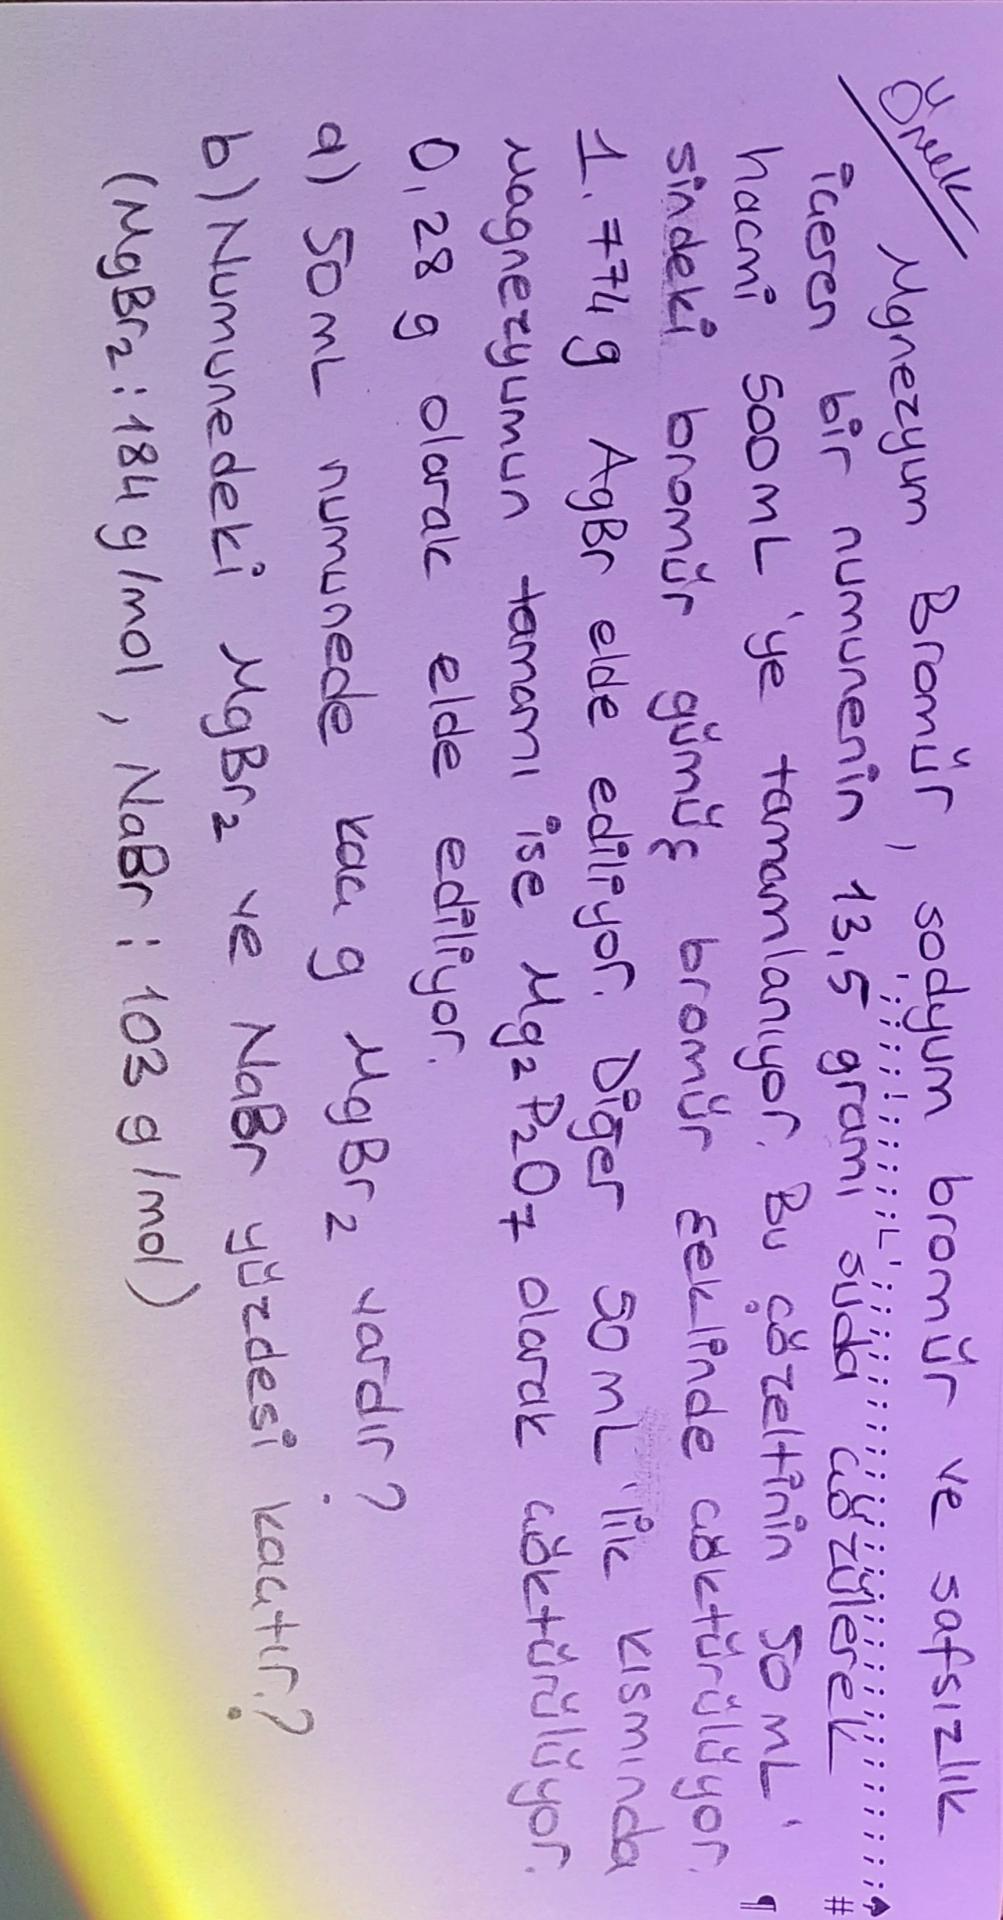 Örnek
Mgnezyum Bromür, sodyum bromür ve safsızlık
içeren bir numunenin 13,5 gramı suda çözülerek
hacmi 500mL'ye tamamlanıyor. Bu çözeltinin 50mL'
sindeki bromür gümüş bromür şeklinde çöktürülüyor.
1.774g AgBr elde ediliyor. Diğer 50mL'lik kısmında
magnezyumun tamamı ise Mg₂P₂O₇ olarak çöktürülüyor.
0,28 g olarak elde ediliyor.
a) 50mL numunede kaç g MgBr₂ vardır?
b) Numunedeki MgBr₂ ve NaBr yüzdesi kaçtır?
(MgBr₂: 184 g/mol, NaBr: 103 g/mol)